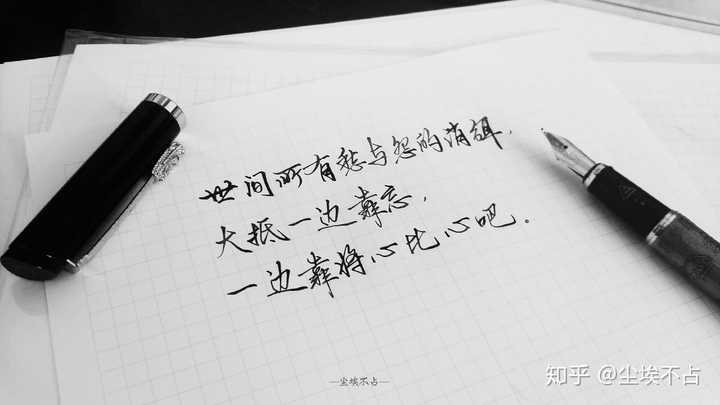 世间所有愁与怨的消弭，
大抵一边靠忘，
一边靠将心比心吧．
—尘埃不占—
知乎 @尘埃不占